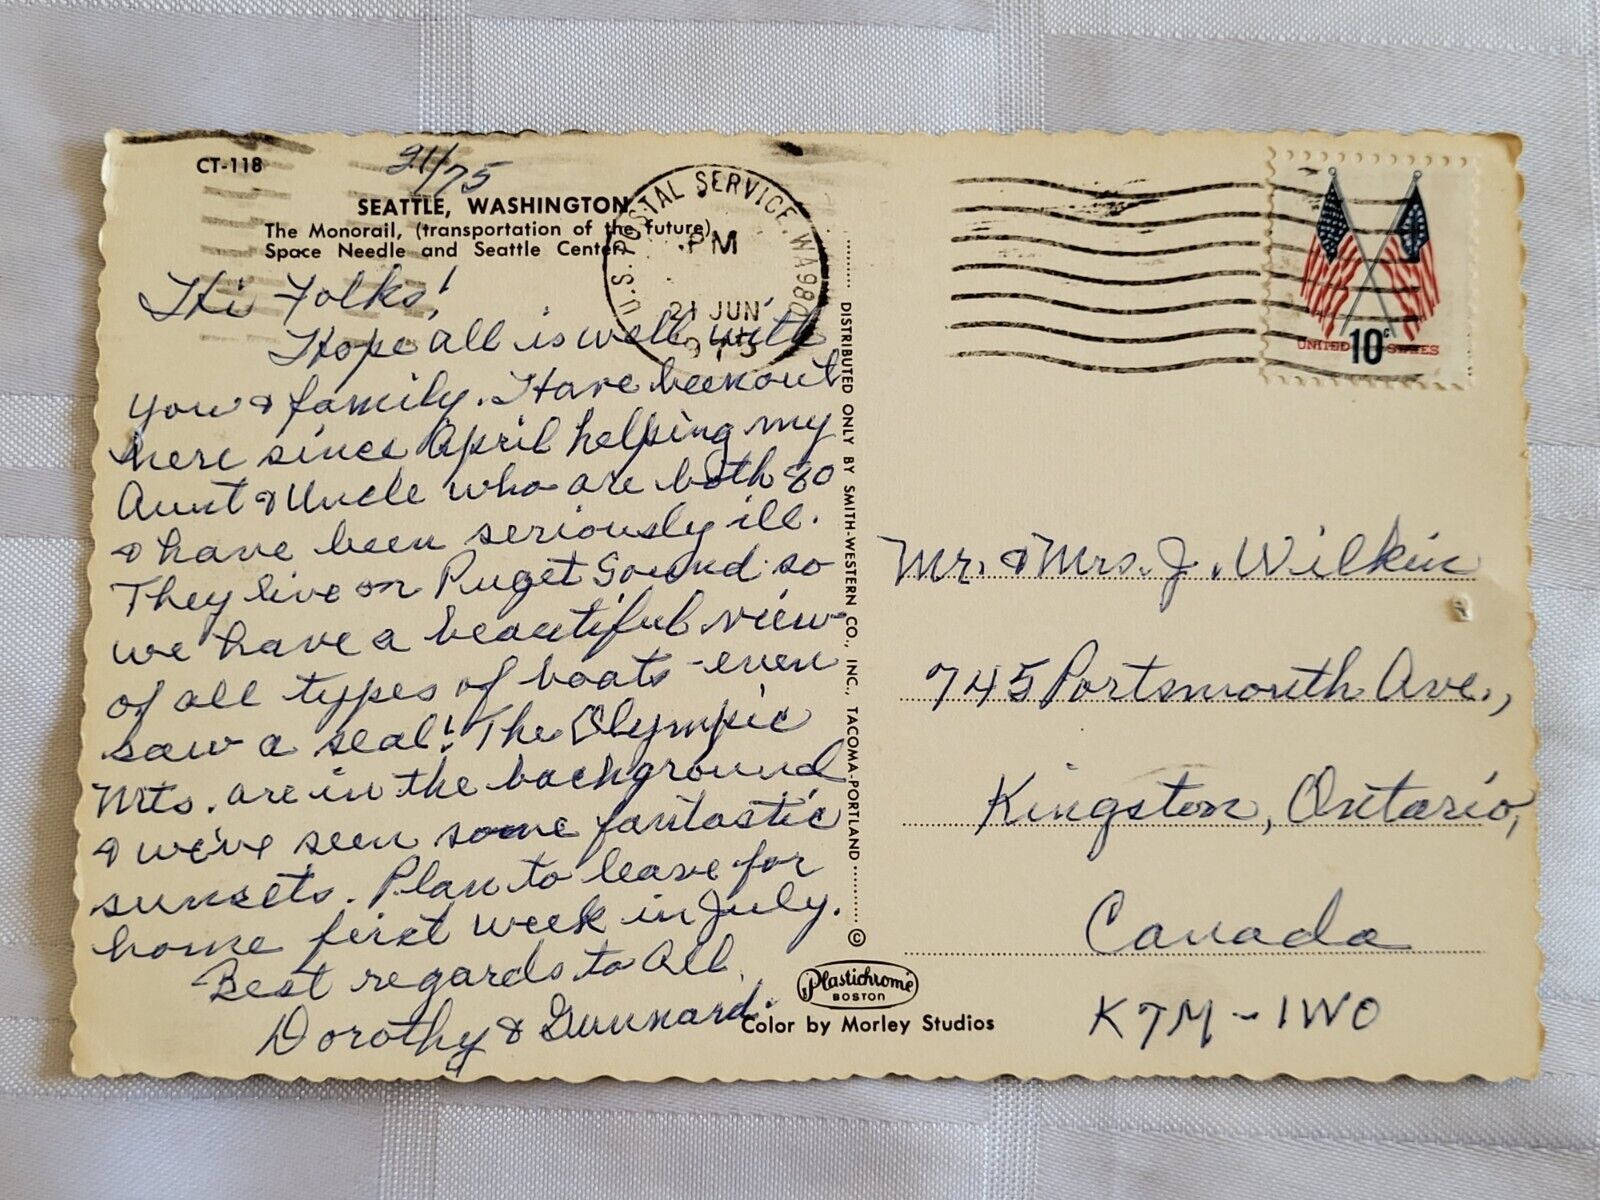 CT-118
21/75
SEATTLE, WASHINGTON
The Monorail, (transportation of the future)
Space Needle and Seattle Center.
Hi Folks!
Hope all is well with
you & family. Have been out
here since April helping my
Aunt & Uncle who are both 80
& have been seriously ill.
They live on Puget Sound so
we have a beautiful view
of all types of boats - even
saw a seal! The Olympic
Mts. are in the background
& we've seen some fantastic
sunsets. Plan to leave for
home first week in July.
Best regards to All.
Dorothy & Gunnard.
U.S. POSTAL SERVICE, WA980
PM
21 JUN
1975
DISTRIBUTED ONLY BY SMITH-WESTERN CO., INC., TACOMA-PORTLAND ©
Plastichrome
BOSTON
Color by Morley Studios
UNITED 10c STATES
Mr. & Mrs. J. Wilkin
745 Portsmouth Ave.,
Kingston, Ontario,
Canada
K7M-1W0